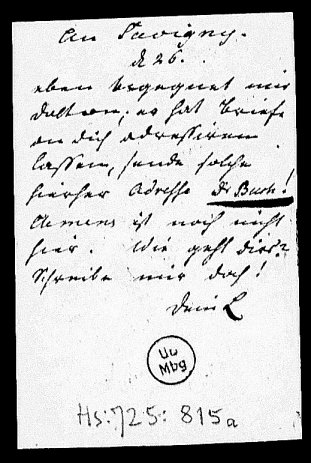 An Savigny.
d 26.
eben begegnet mir
er hat Briefe
an dich adressiren
lassen, sende solche
hierher Adresse Dr Barth!
Clemens ist noch nicht
hier. Wie geht dirs?
Schreibe mir doch!
Dein L
UB
Mbg
Hs: 725: 815a